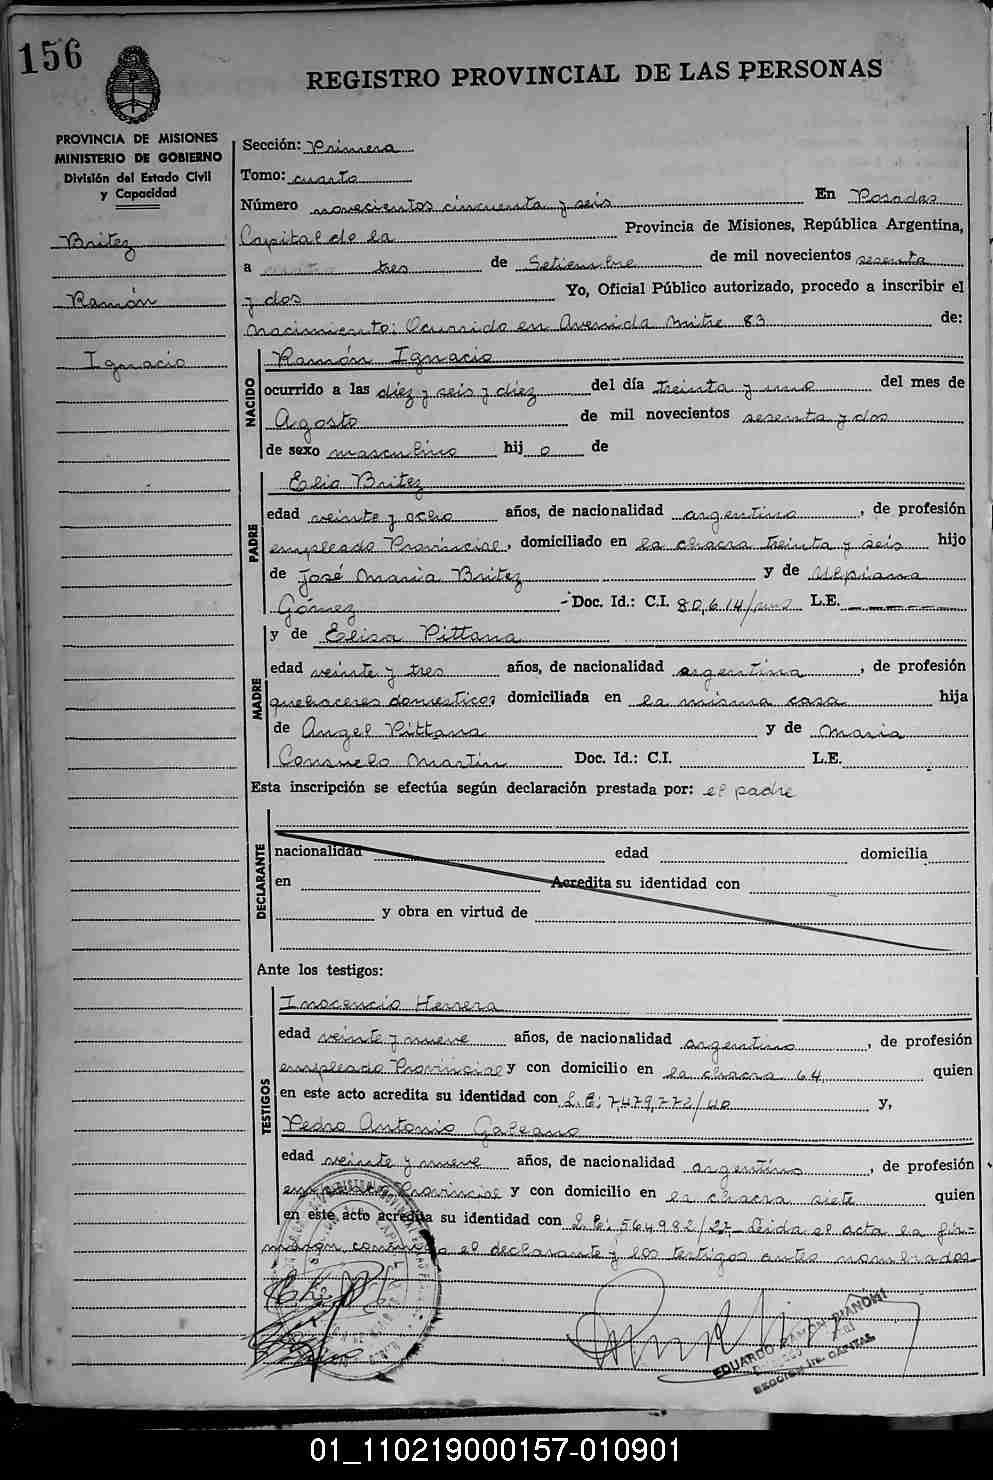 156
REGISTRO PROVINCIAL DE LAS PERSONAS
PROVINCIA DE MISIONES
MINISTERIO DE GOBIERNO
División del Estado Civil
y Capacidad
Britez
Ramón
Ignacio
Sección: Primera
Tomo: cuarto
Número novecientos cincuenta y seis En Posadas
Capital de la Provincia de Misiones, República Argentina,
a tres de Setiembre de mil novecientos sesenta
y dos Yo, Oficial Público autorizado, procedo a inscribir el
nacimiento: Ocurrido en Avenida Mitre 83 de:
NACIDO
Ramón Ignacio
ocurrido a las diez y seis y diez del día treinta y uno del mes de
Agosto de mil novecientos sesenta y dos
de sexo masculino hij o de
PADRE
Elio Britez
edad veinte y ocho años, de nacionalidad argentino, de profesión
empleado Provincial, domiciliado en la chacra treinta y seis hijo
de José Maria Britez y de Ulpiana
Gómez Doc. Id.: C.I. 80,614/uno L.E.
MADRE
y de Elisa Pittana
edad veinte y tres años, de nacionalidad argentina, de profesión
quehaceres domesticos domiciliada en la misma casa hija
de Angel Pittana y de Maria
Consuelo Martin Doc. Id.: C.I. L.E.
Esta inscripción se efectúa según declaración prestada por: el padre
DECLARANTE
nacionalidad edad domicilia
en Acredita su identidad con
y obra en virtud de
Ante los testigos:
TESTIGOS
Inocencio Herrera
edad veinte y nueve años, de nacionalidad argentino, de profesión
empleado Provincial y con domicilio en la chacra 64 quien
en este acto acredita su identidad con L.E: 7,479,772/40 y,
Pedro Antonio Galeano
edad veinte y nueve años, de nacionalidad argentino, de profesión
empleado Provincial y con domicilio en la chacra siete quien
en este acto acredita su identidad con L.E: 564982/27- Leida el acta la fir-
maron conmigo el declarante y los testigos antes nombrados
EDUARDO RAMON BIANCHI
01_110219000157-010901